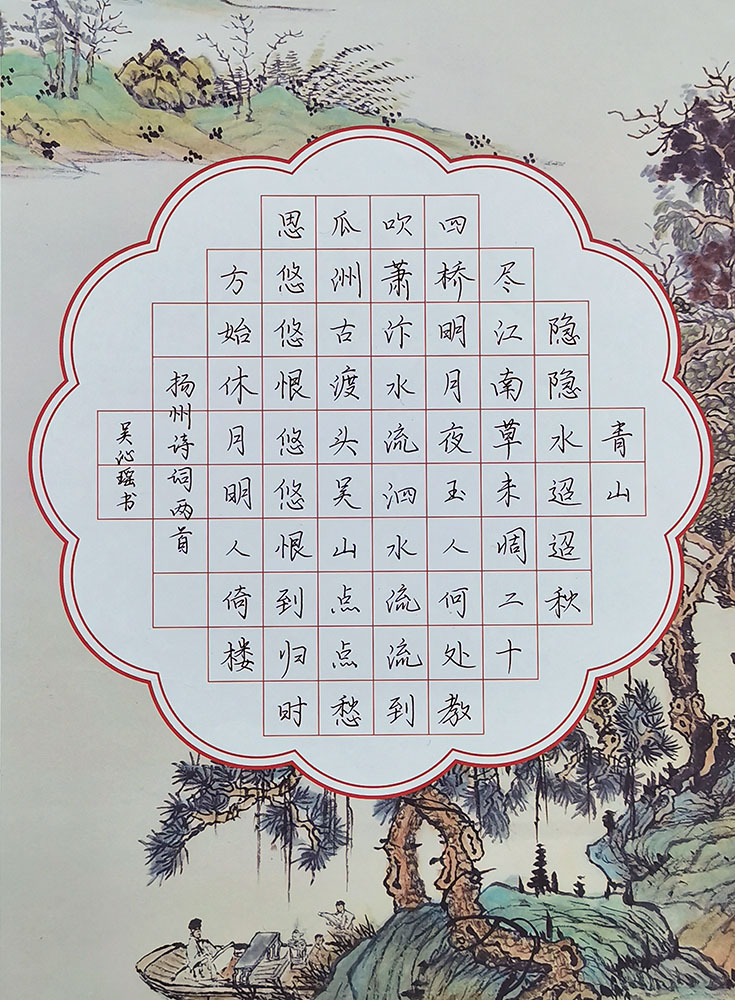 青山
隐隐水迢迢秋
尽江南草未凋二十
四桥明月夜玉人何处教
吹萧汴水流泗水流流到
瓜洲古渡头吴山点点愁
思悠悠恨悠悠恨到归时
方始休月明人倚楼
扬州诗词两首
吴沁瑶书